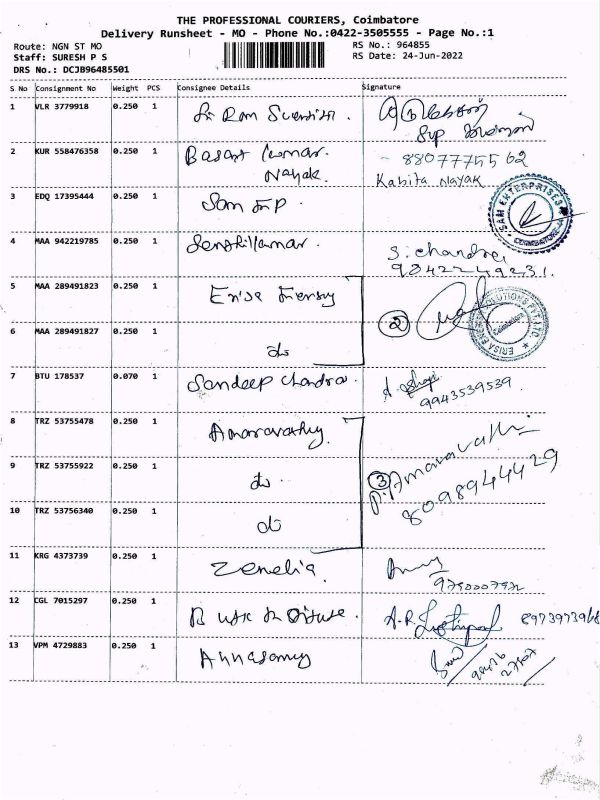 THE PROFESSIONAL COURIERS, Coimbatore
Delivery Runsheet - MO - Phone No.:0422-3505555 - Page No.:1
Route: NGN ST MO
Staff: SURESH P S
DRS No.: DCJB96485501
RS No.: 964855
RS Date: 24-Jun-2022
S No Consignment No Weight PCS Consignee Details Signature
1 VLR 3779918 0.250 1 Sri Ram
2 KUR 558476358 0.250 1 Basant Kumar Nayak
8807775562
Kabita Nayak
3 EDQ 17395444 0.250 1 Sam
SAM ENTERPRISES
COIMBATORE
4 MAA 942219785 0.250 1 Senthilkumar
S. Chandra
9842249231.
5 MAA 289491823 0.250 1 Erisa Energy
2
ERISA ENERGY SOLUTIONS PVT. LTD.
Coimbatore
6 MAA 289491827 0.250 1 do
7 BTU 178537 0.070 1 Sandeep Chandra
9943539539
8 TRZ 53755478 0.250 1 Amaravathy
9 TRZ 53755922 0.250 1 do
3
P. Amaravathi
8098944429
10 TRZ 53756340 0.250 1 do
11 KRG 4373739 0.250 1 Zenelia
12 CGL 7015297 0.250 1 B
A.R.
8973973968
13 VPM 4729883 0.250 1 Annasamy